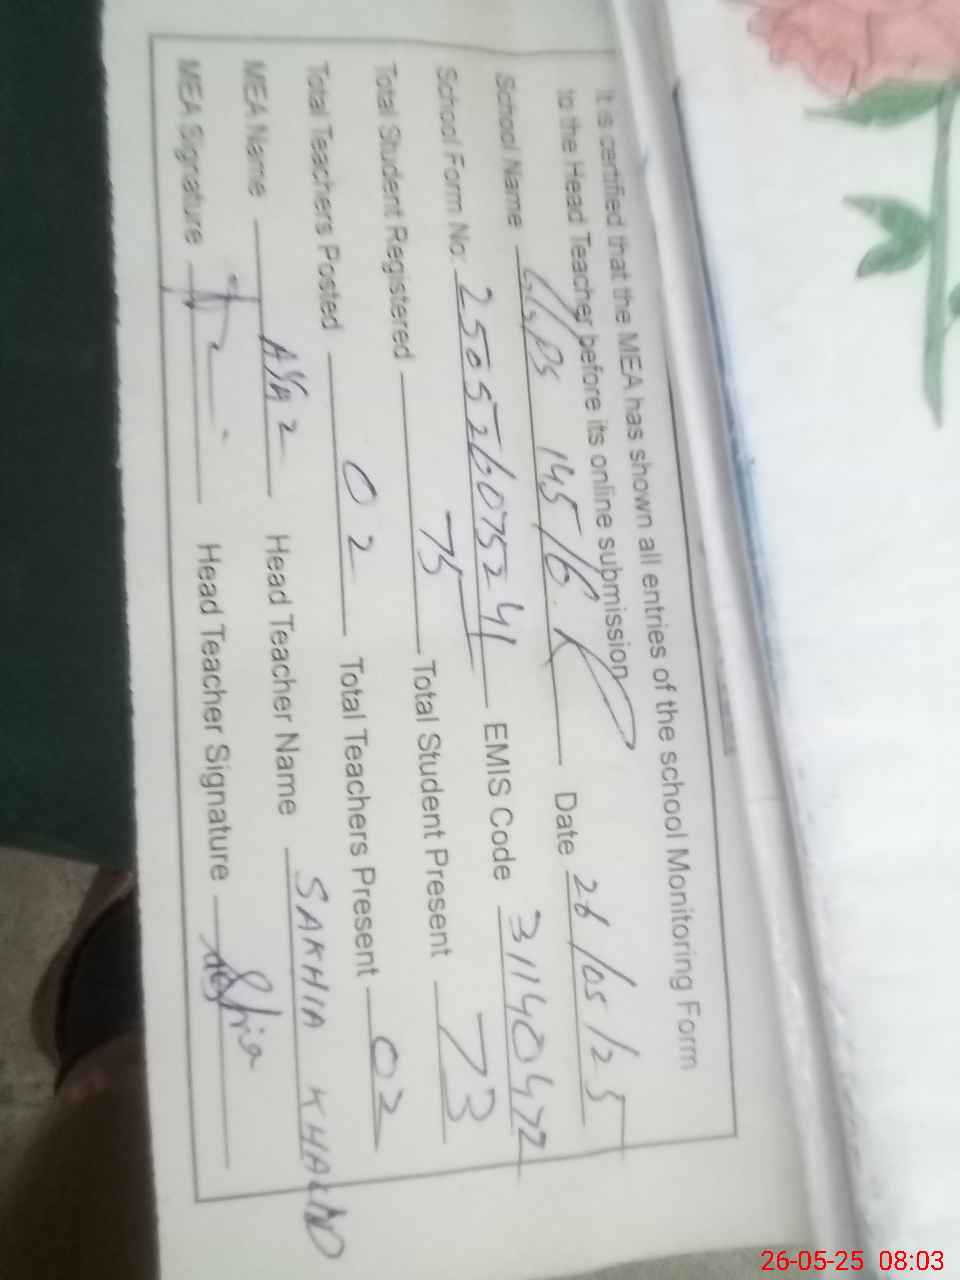 It is certified that the MEA has shown all entries of the school Monitoring Form
to the Head Teacher before its online submission
School Name GGPS 145/6.R Date 26/05/25
School Form No: 250526075241 EMIS Code 31140472
Total Student Registered 75 Total Student Present 73
Total Teachers Posted 02 Total Teachers Present 02
MEA Name AYAZ Head Teacher Name SAKHIA KHAN
MEA Signature Head Teacher Signature
26-05-25 08:03